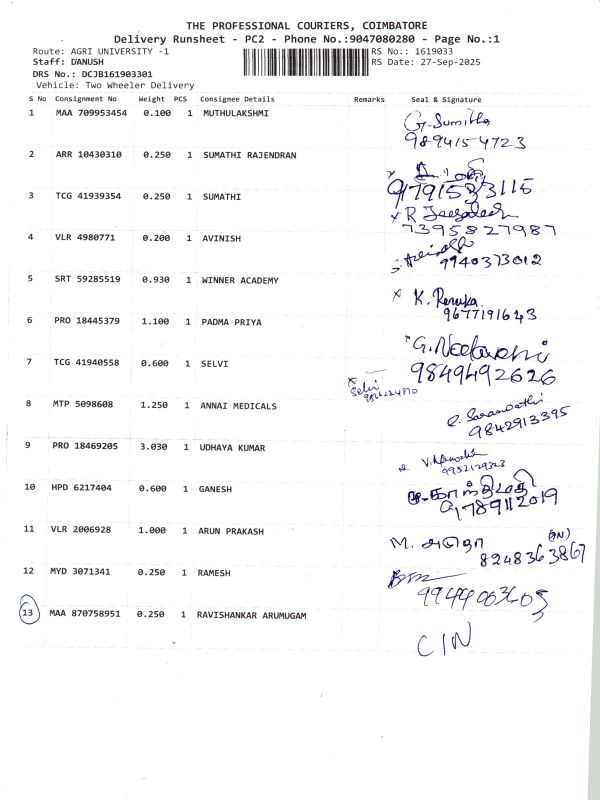 THE PROFESSIONAL COURIERS, COIMBATORE
Delivery Runsheet - PC2 - Phone No.:9047080280 - Page No.:1
Route: AGRI UNIVERSITY -1 RS No.: 1619033
Staff: DANUSH RS Date: 27-Sep-2025
DRS No.: DCJB161903301
Vehicle: Two Wheeler Delivery
S No Consignment No Weight PCS Consignee Details Remarks Seal & Signature
1 MAA 709953454 0.100 1 MUTHULAKSHMI G. Sumitha
9894154723
2 ARR 10430310 0.250 1 SUMATHI RAJENDRAN
9791533115
3 TCG 41939354 0.250 1 SUMATHI x R Jeegadeesh
7395827987
4 VLR 4980771 0.200 1 AVINISH
9940373012
5 SRT 59285519 0.930 1 WINNER ACADEMY x K. Renuka
9677191643
6 PRO 18445379 1.100 1 PADMA PRIYA
7 TCG 41940558 0.600 1 SELVI 9849492626
x Selvi
8 MTP 5098608 1.250 1 ANNAI MEDICALS C. Saraswathi
9842913395
9 PRO 18469205 3.030 1 UDHAYA KUMAR
9952129323
10 HPD 6217404 0.600 1 GANESH சு. காந்திமதி
9789112019
11 VLR 2006928 1.000 1 ARUN PRAKASH M.
8248363867
12 MYD 3071341 0.250 1 RAMESH
9944003605
13 MAA 870758951 0.250 1 RAVISHANKAR ARUMUGAM
C/N